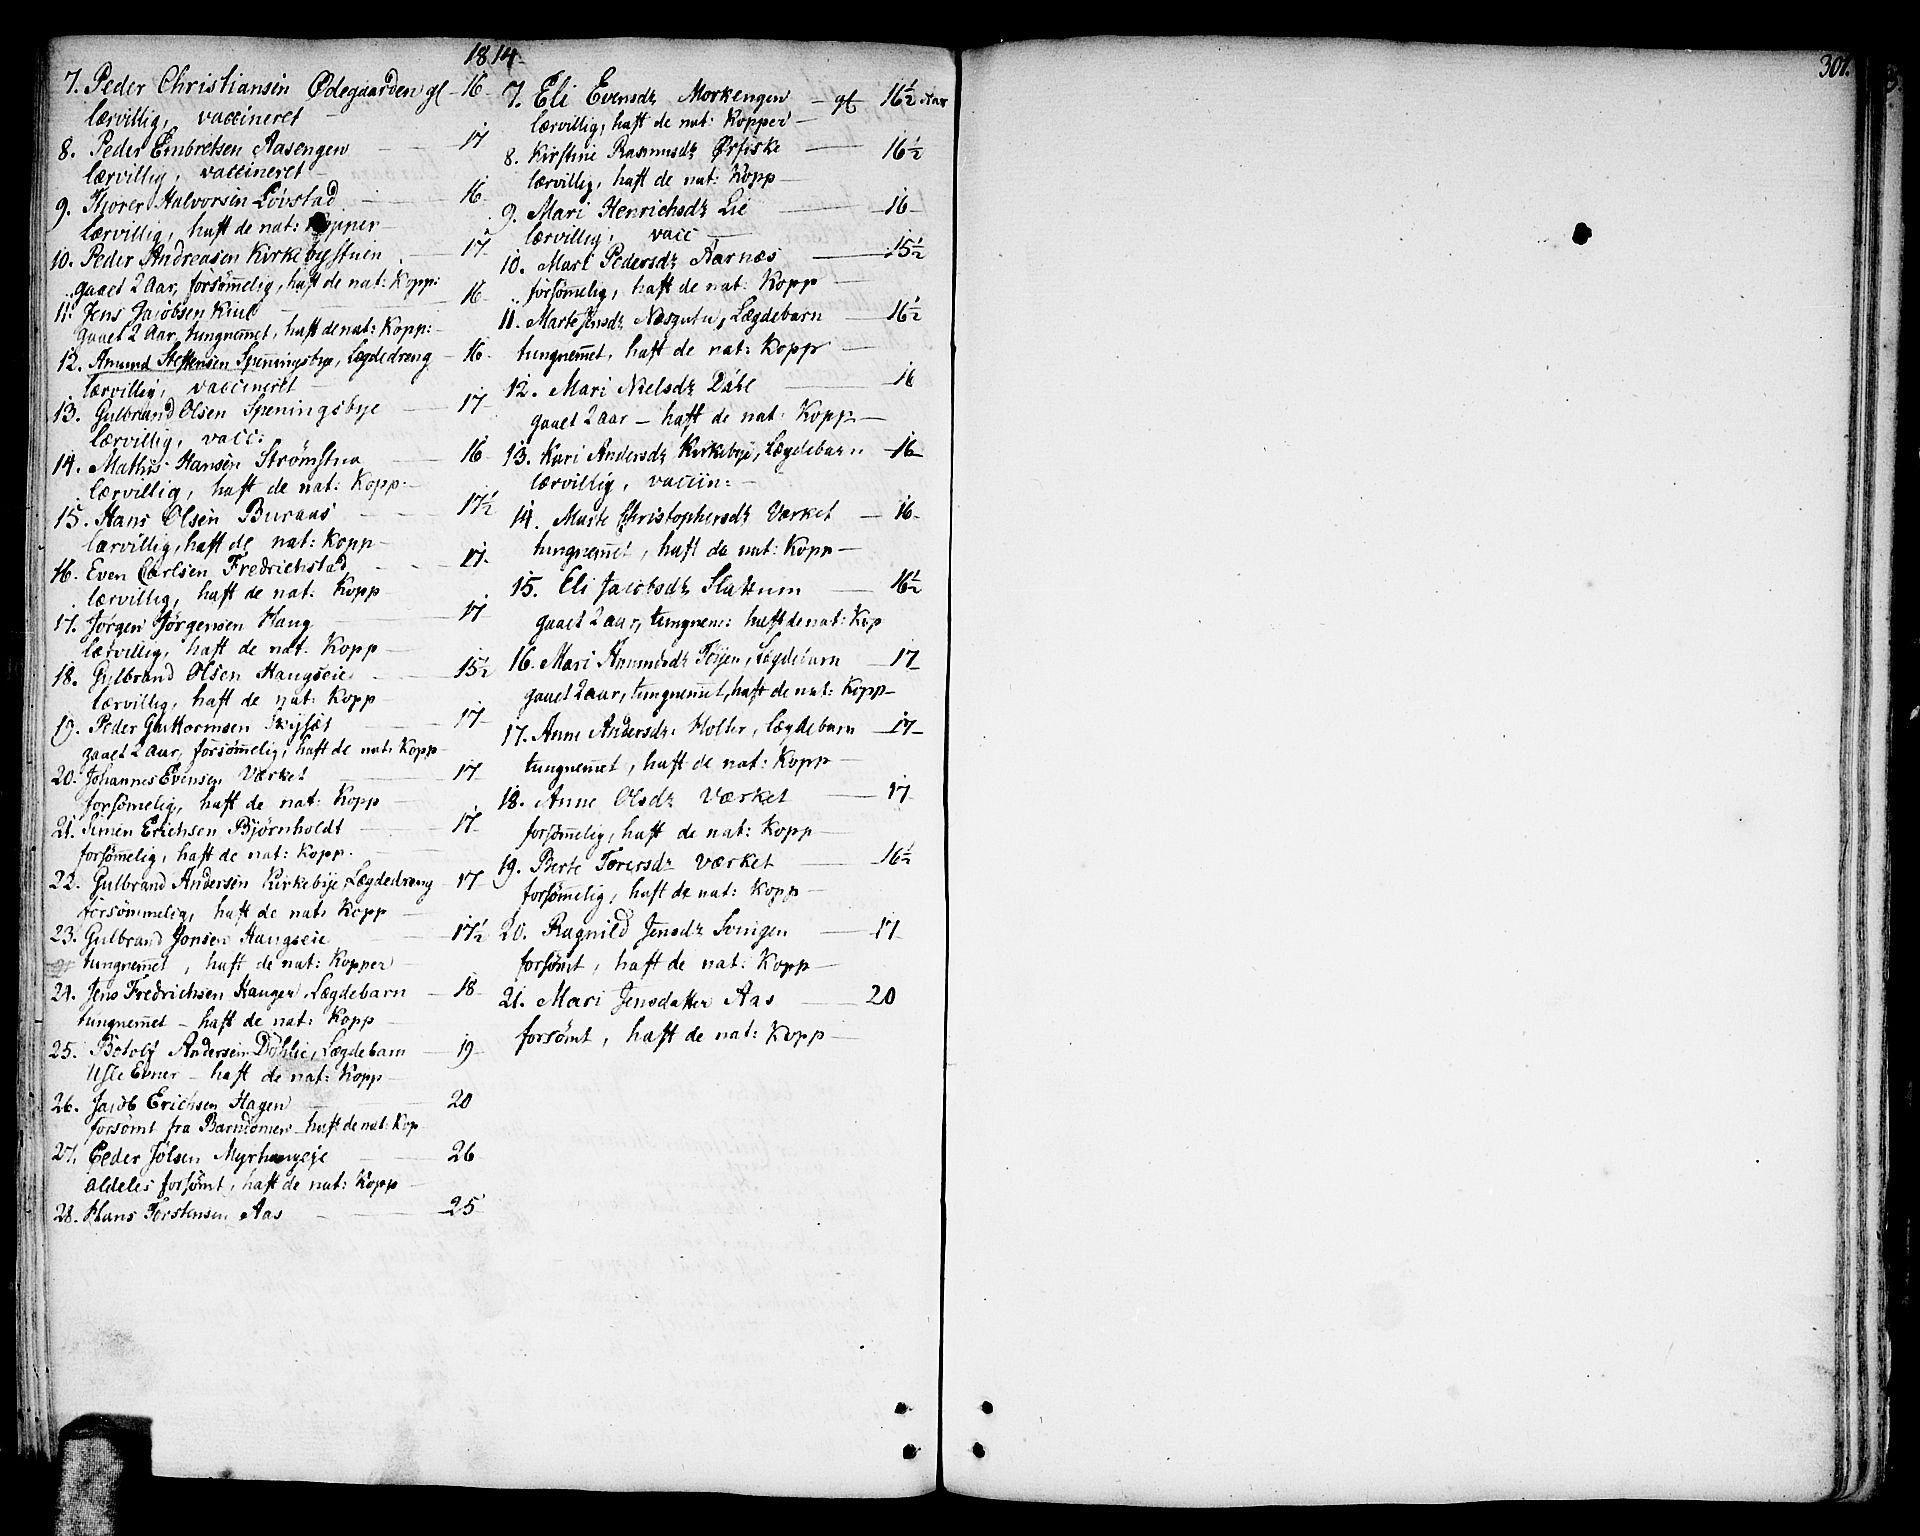 1814
7. Peder Christiansen Ødegaarden gl - 16
lærvillig, vaccineret -
8. Peder Embretsen Aasengen - 17
lærvillig, vaccineret
9. Thorer Halvorsen Løvstad - 16
lærvillig, haft de nat: Kopper
10. Peder Andreasen Kirkebystuen - 17
gaaet 2 Aar, forsømelig, haft de nat: Kopp:
11. Jens Jacobsen - 16
gaaet 2 Aar, tungnemet, haft de nat: Kopp:
12. Amund Steffensen Spenningsbye, Lægdedreng - 16
lærvillig, vaccineret
13. Gulbrand Olsen Speningsbye - 17
lærvillig, vacc:
14. Mathis Hansen Strømstua - 16
lærvillig, haft de nat: Kopp:
15. Hans Olsen Buraas - 17½
lærvillig, haft de nat: Kopp-
16. Even Carlsen Fredrichstad - 17
lærvillig, haft de nat: Kopp
17. Jørgen Jørgensen Haug - 17
lærvillig, haft de nat: Kopp
18. Gulbrand Olsen Haugseie - 15½
lærvillig, haft de nat: Kopp
19. Peder Guttormsen - 17
gaaet 2 aar, forsømelig, haft de nat: Kopp-
20. Johannes Evensen Værket - 17
forsømelig, haft de nat: Kopp
21. Simen Erichsen Bjørnholdt - 17
forsømelig, haft de nat: Kopp.
22. Gulbrand Andersen Kirkebye, Lægdedreng - 17
forsømmelig, haft de nat: Kopp
23. Gulbrand Jonsen Haugseie - 17½
tungnemet, haft de nat: Kopper
24. Jens Fredrichsen Hauger, Lægdebarn - 18
tungnemet - haft de nat: Kopp
25. Botolf Andersen Døhlie, Lægdebarn - 19
Usle Evner - haft de nat: Kopp
26. Jacob Erichsen Hagen 20
forsømt fra Barndomen - haft de nat: Kop
27. Peder Jolsen Myrhaugeje - 26
aldeles forsømt, haft de nat: Kopp
28. Hans Torstensen Aas - 25
7. Eli Evensdr Morkengen - gl - 16½ Aar
lærvillig, haft de nat: Kopper -
8. Kirstine Rasmusdr Ørfiske - 16½
lærvillig, haft de nat: Kopp
9. Mari Henrichsdr Lie - 16
lærvillig, vacc
10. Mari Pedersdr Aarnæs - 15½
forsømelig, haft de nat: Kopp
11. Marte Jensdr, Lægdebarn - 16½
tungnemet, haft de nat: Kopp
12. Mari Nielsdr Dåle 16
gaaet 2 aar - haft de nat: Kopp
13. Kari Andersdr Kirkebye, Lægdebarn - 16
lærvillig, vaccin:
14. Marte Christophersdr Værket - 16
tungnemet, haft de nat: Kopp -
15. Eli Jacobsdr Slattum - 16½
gaaet 2 aar, tungnem: haft de nat: Kop
16. Mari Amundsdr Tøyen, Lægdebarn - 17
gaaet 2 aar, tungnemet, haft de nat: Kopp-
17. Anne Andersdr Holter, Lægdebarn - 17
tungnemet, haft de nat: Kopp
18. Anne Olsdr Værket - 17
forsømelig, haft de nat: Kopp
19. Berte Torersdr Værket - 16½
forsømelig, haft de nat: Kopp
20. Ragnild Jensdr Svingen - 17
forsømt, haft de nat: Kopp
21. Mari Jensdatter Aas - 20
forsømt, haft de nat: Kopp
307.